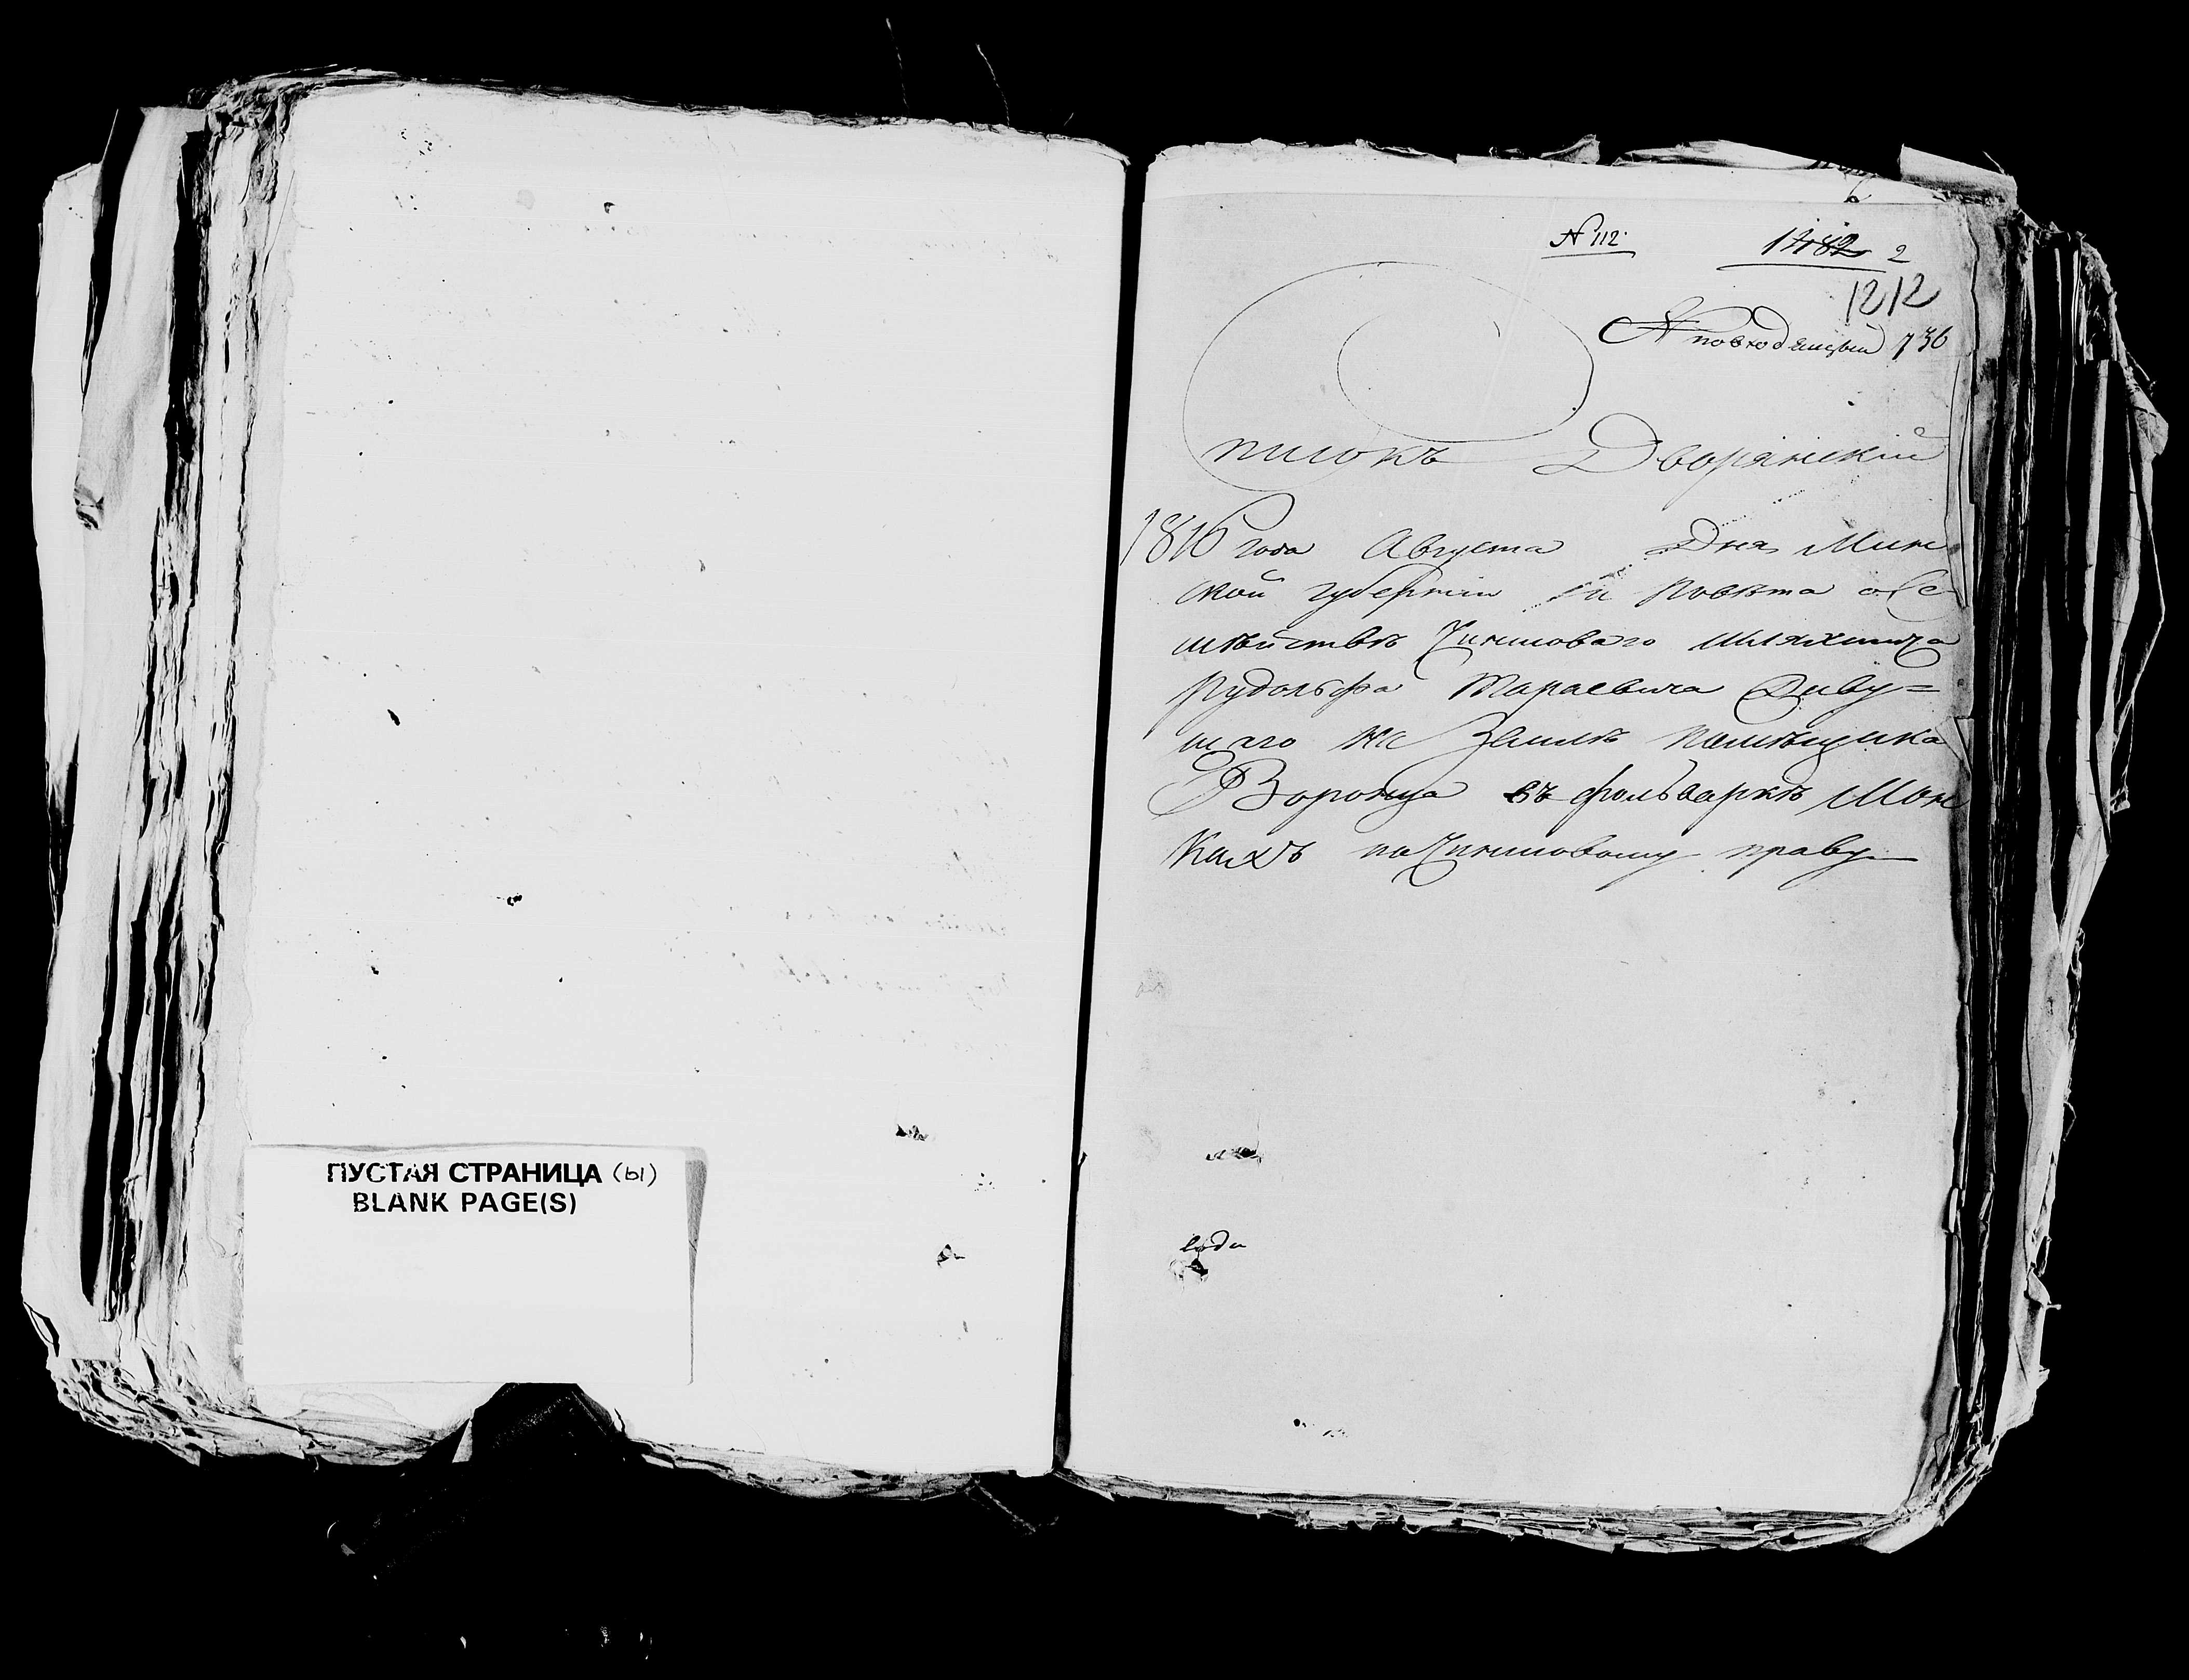 ПУСТАЯ СТРАНИЦА (ы)
BLANK PAGE(S)
№ 112.
1482 2
1212
№ повходящый 736
Списокъ Дворянскій
1816 года Августа Дня Мин
ской губерніи Повѣта о Се-
мѣйствѣ Чиншоваго Шляхтича
Рудольфа Тараевича Живу=
щаго на Землѣ Помѣщика
Воронца въ фольваркѣ Мон
кахъ по Чиншовому праву